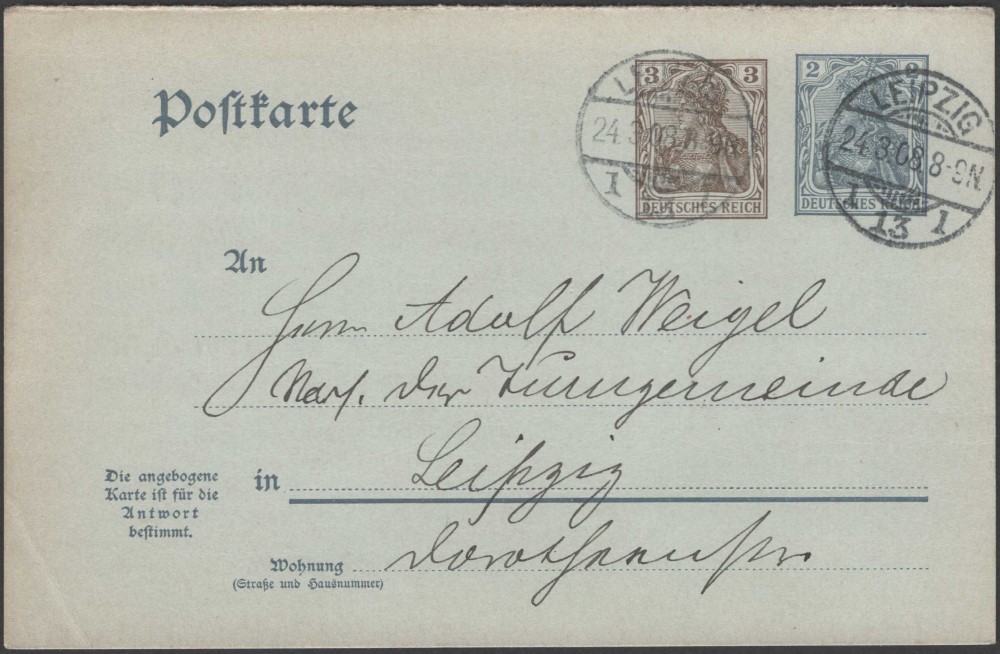 Postkarte
3 3
DEUTSCHES REICH
2 2
DEUTSCHES REICH
24.3.08.
1
LEIPZIG
24.3.08.8-9N.
1
13 1
An
Herrn Adolf Weigel
der Turngemeinde
in Leipzig
Dorotheenstr.
Die angebogene
Karte ist für die
Antwort
bestimmt.
Wohnung
(Straße und Hausnummer)